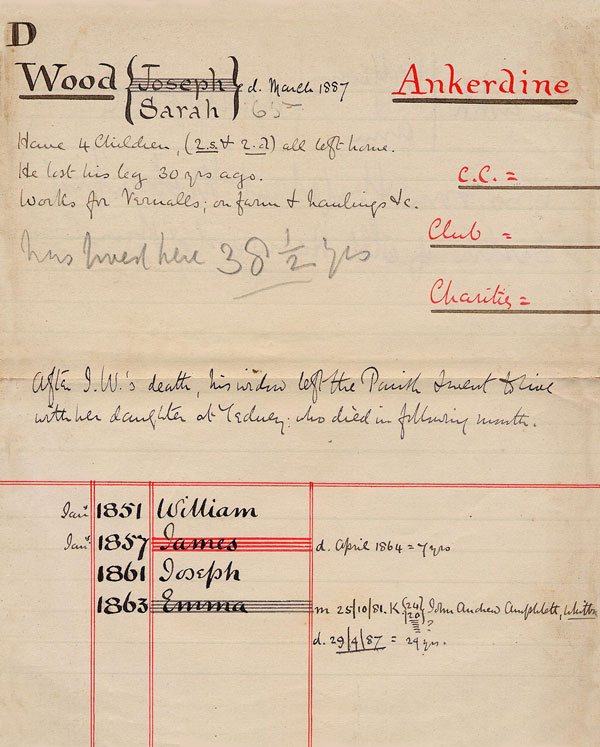 D
Wood { Joseph } d. March 1887
Sarah 65
Ankerdine
Have 4 Children, (2.s. & 2.d) all left home.
He lost his leg 30 yrs ago.
C.C. =
Works for Vernalls; on farm & haulings &c.
Club =
has lived here 38½ yrs
Charities =
After J.W.'s death, his widow left the Parish & went to live
with her daughter at Tedney: who died in following month.
Jany 1851 William
Jany 1857 James d. April 1864 = 7 yrs
1861 Joseph
1863 Emma m 25/10/81. K. {24 20}? John Andrew Amphlett,
d. 29/4/87 = 24 yrs.